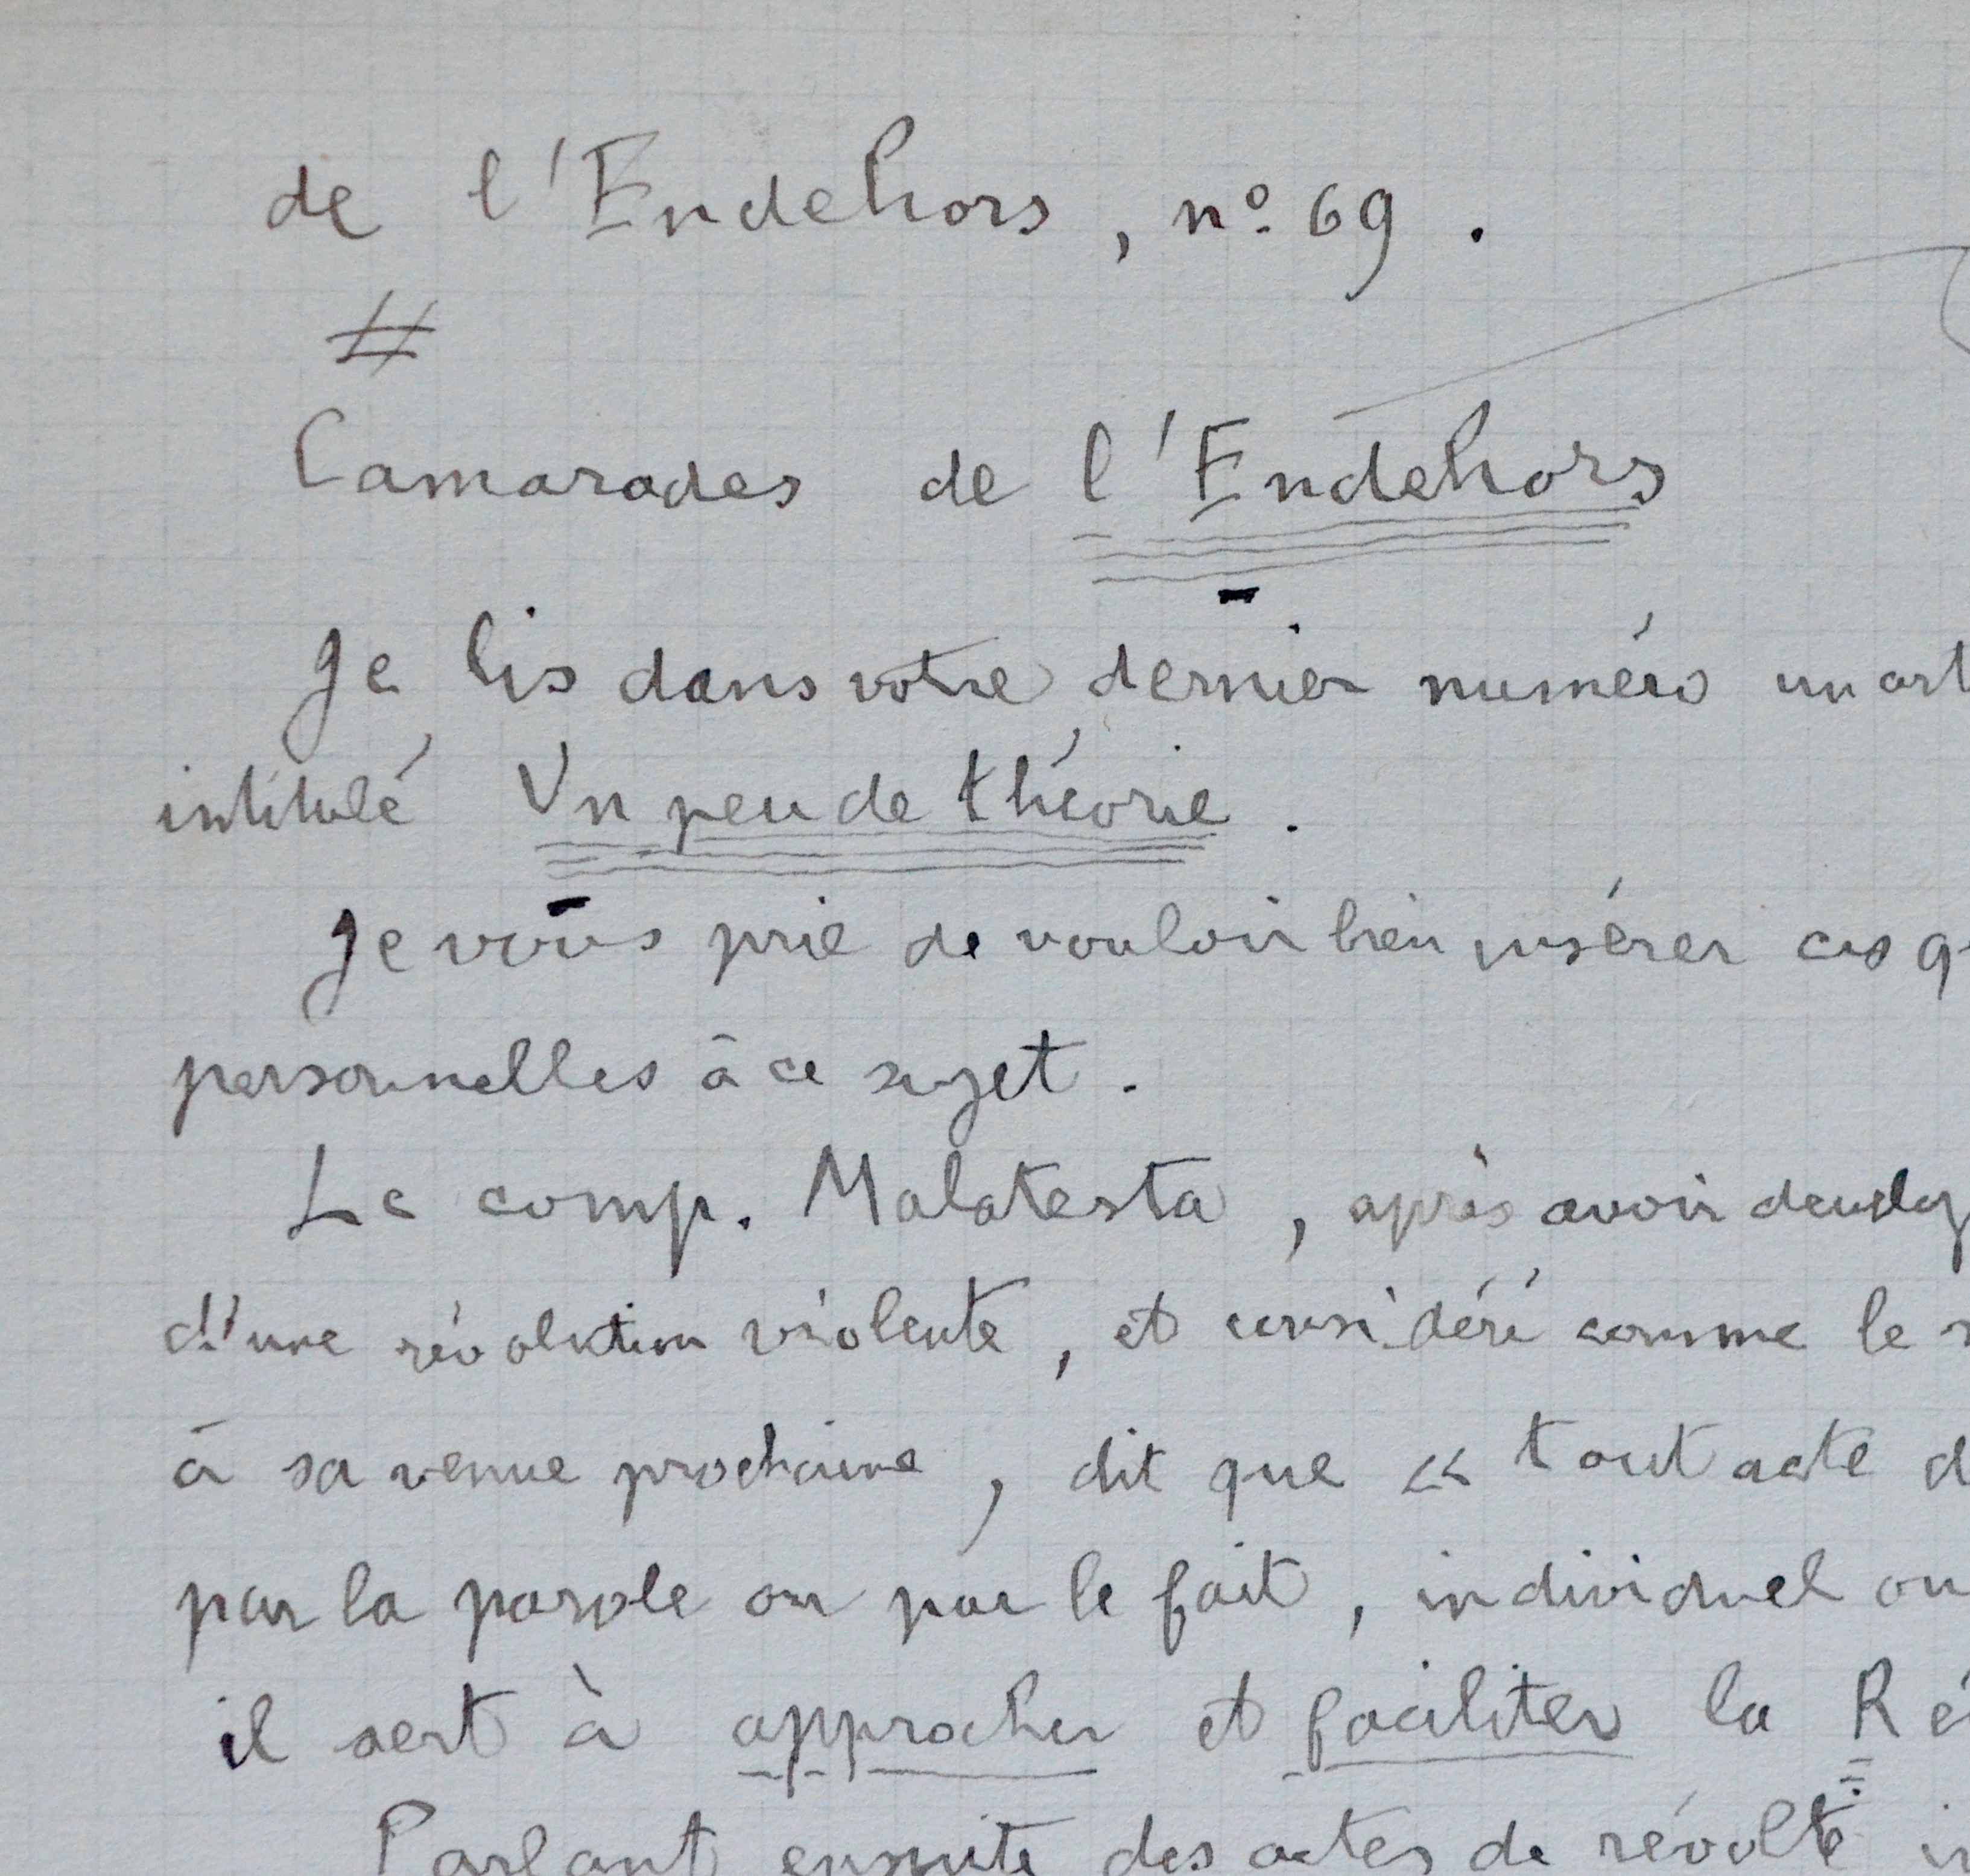 de l'Endehors, nº 69.
#
Camarades de l'Endehors
Je lis dans votre dernier numéro un art
intitulé Un peu de théorie.
Je vous prie de vouloir bien insérer ces q
personnelles à ce sujet.
Le comp. Malatesta, après avoir develop
d'une révolution violente, et considéré comme le
à sa venue prochaine, dit que « tout acte d
par la parole ou par le fait, individuel ou
il sert à approcher et faciliter la Ré
Parlant ensuite des actes de révolte in